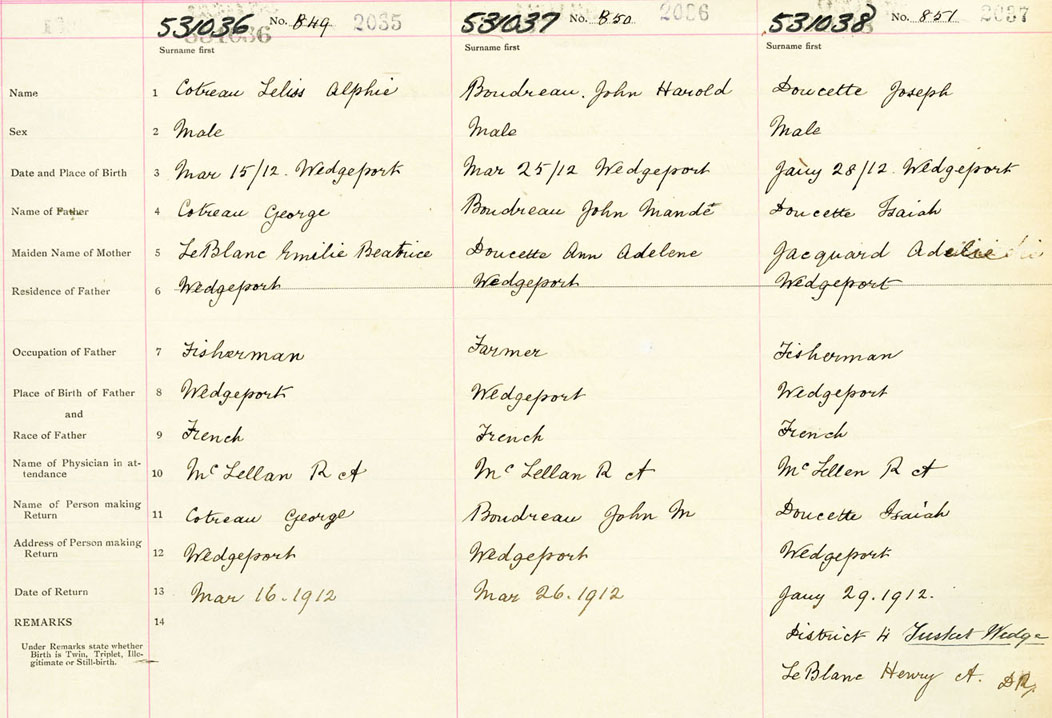 531036 No. 849 2035 531037 No. 850 2036 531038 No. 851 2037
Surname first Surname first Surname first
Name 1 Cotreau Leliss Alphie Boudreau. John Harold Doucette Joseph
Sex 2 Male Male Male
Date and Place of Birth 3 Mar 15/12. Wedgeport Mar 25/12 Wedgeport Jany 28/12. Wedgeport
Name of Father 4 Cotreau George Boudreau John Mandé Doucette Isaiah
Maiden Name of Mother 5 LeBlanc Emilie Beatrice Doucette Ann Adelene Jacquard Adelie
Residence of Father 6 Wedgeport Wedgeport Wedgeport
Occupation of Father 7 Fisherman Farmer Fisherman
Place of Birth of Father 8 Wedgeport Wedgeport Wedgeport
and
Race of Father 9 French French French
Name of Physician in at-
tendance 10 Mc Lellan R A Mc Lellan R A Mc Lellen R A
Name of Person making
Return 11 Cotreau George Boudreau John M Doucette Isaiah
Address of Person making
Return 12 Wedgeport Wedgeport Wedgeport
Date of Return 13 Mar 16.1912 Mar 26.1912 Jany 29.1912.
REMARKS 14
District 4 Tusket Wedge
Under Remarks state whether
Birth is Twin, Triplet, Ille-
gitimate or Still-birth.
LeBlanc Henry A. DR